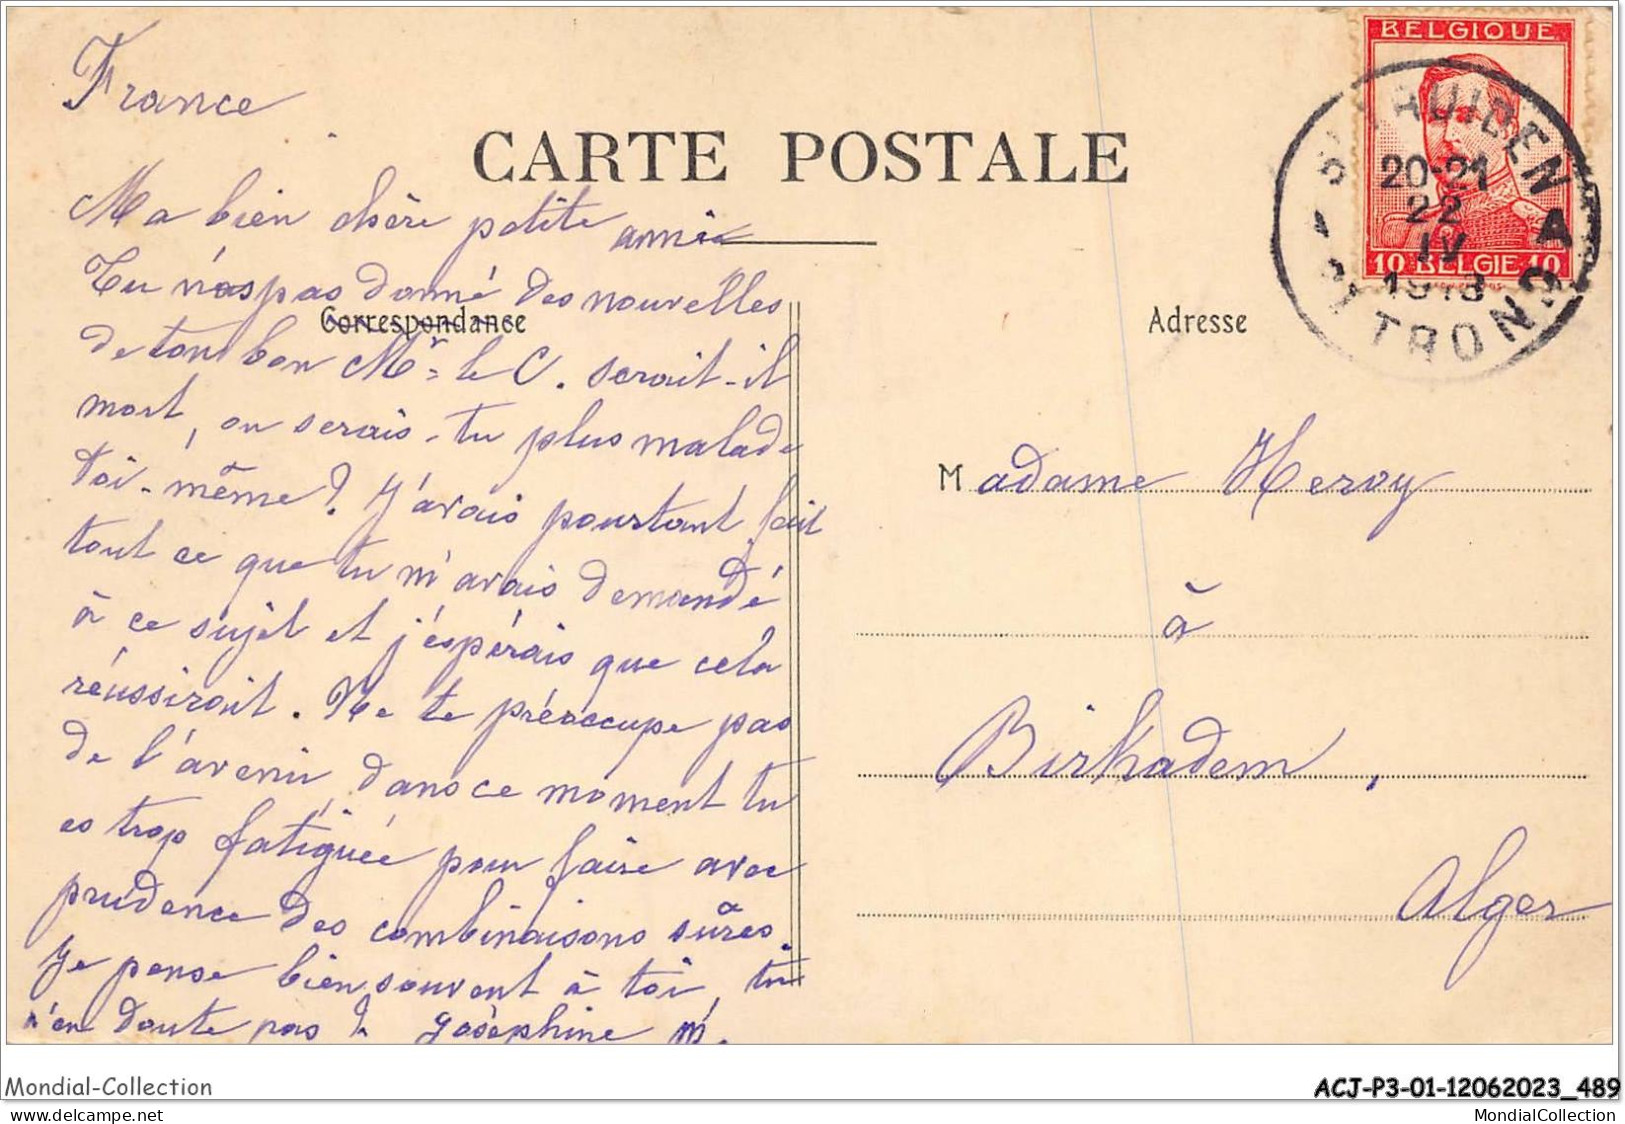 France
CARTE POSTALE
Ma bien chère petite amie
Tu n'as pas donné des nouvelles
Correspondance
de ton bon Mr le C. serait-il
mort, ou serais-tu plus malade
toi-même? J'avais pourtant fait
tout ce que tu m'avais demandé
à ce sujet et j'espérais que cela
réussirait. Ne te préoccupe pas
de l'avenir, dans ce moment tu
es trop fatiguée pour faire avec
prudence des combinaisons sûres.
Je pense bien souvent à toi, tu
n'en doute pas? Joséphine M.
BELGIQUE
10 BELGIE 10
ST TRUIDEN
20-21
22
IV
1913
A
ST TROND
Adresse
Madame Hervy
à
Birkadem,
Alger
Mondial-Collection
ACJ-P3-01-12062023_489
www.delcampe.net
MondialCollection